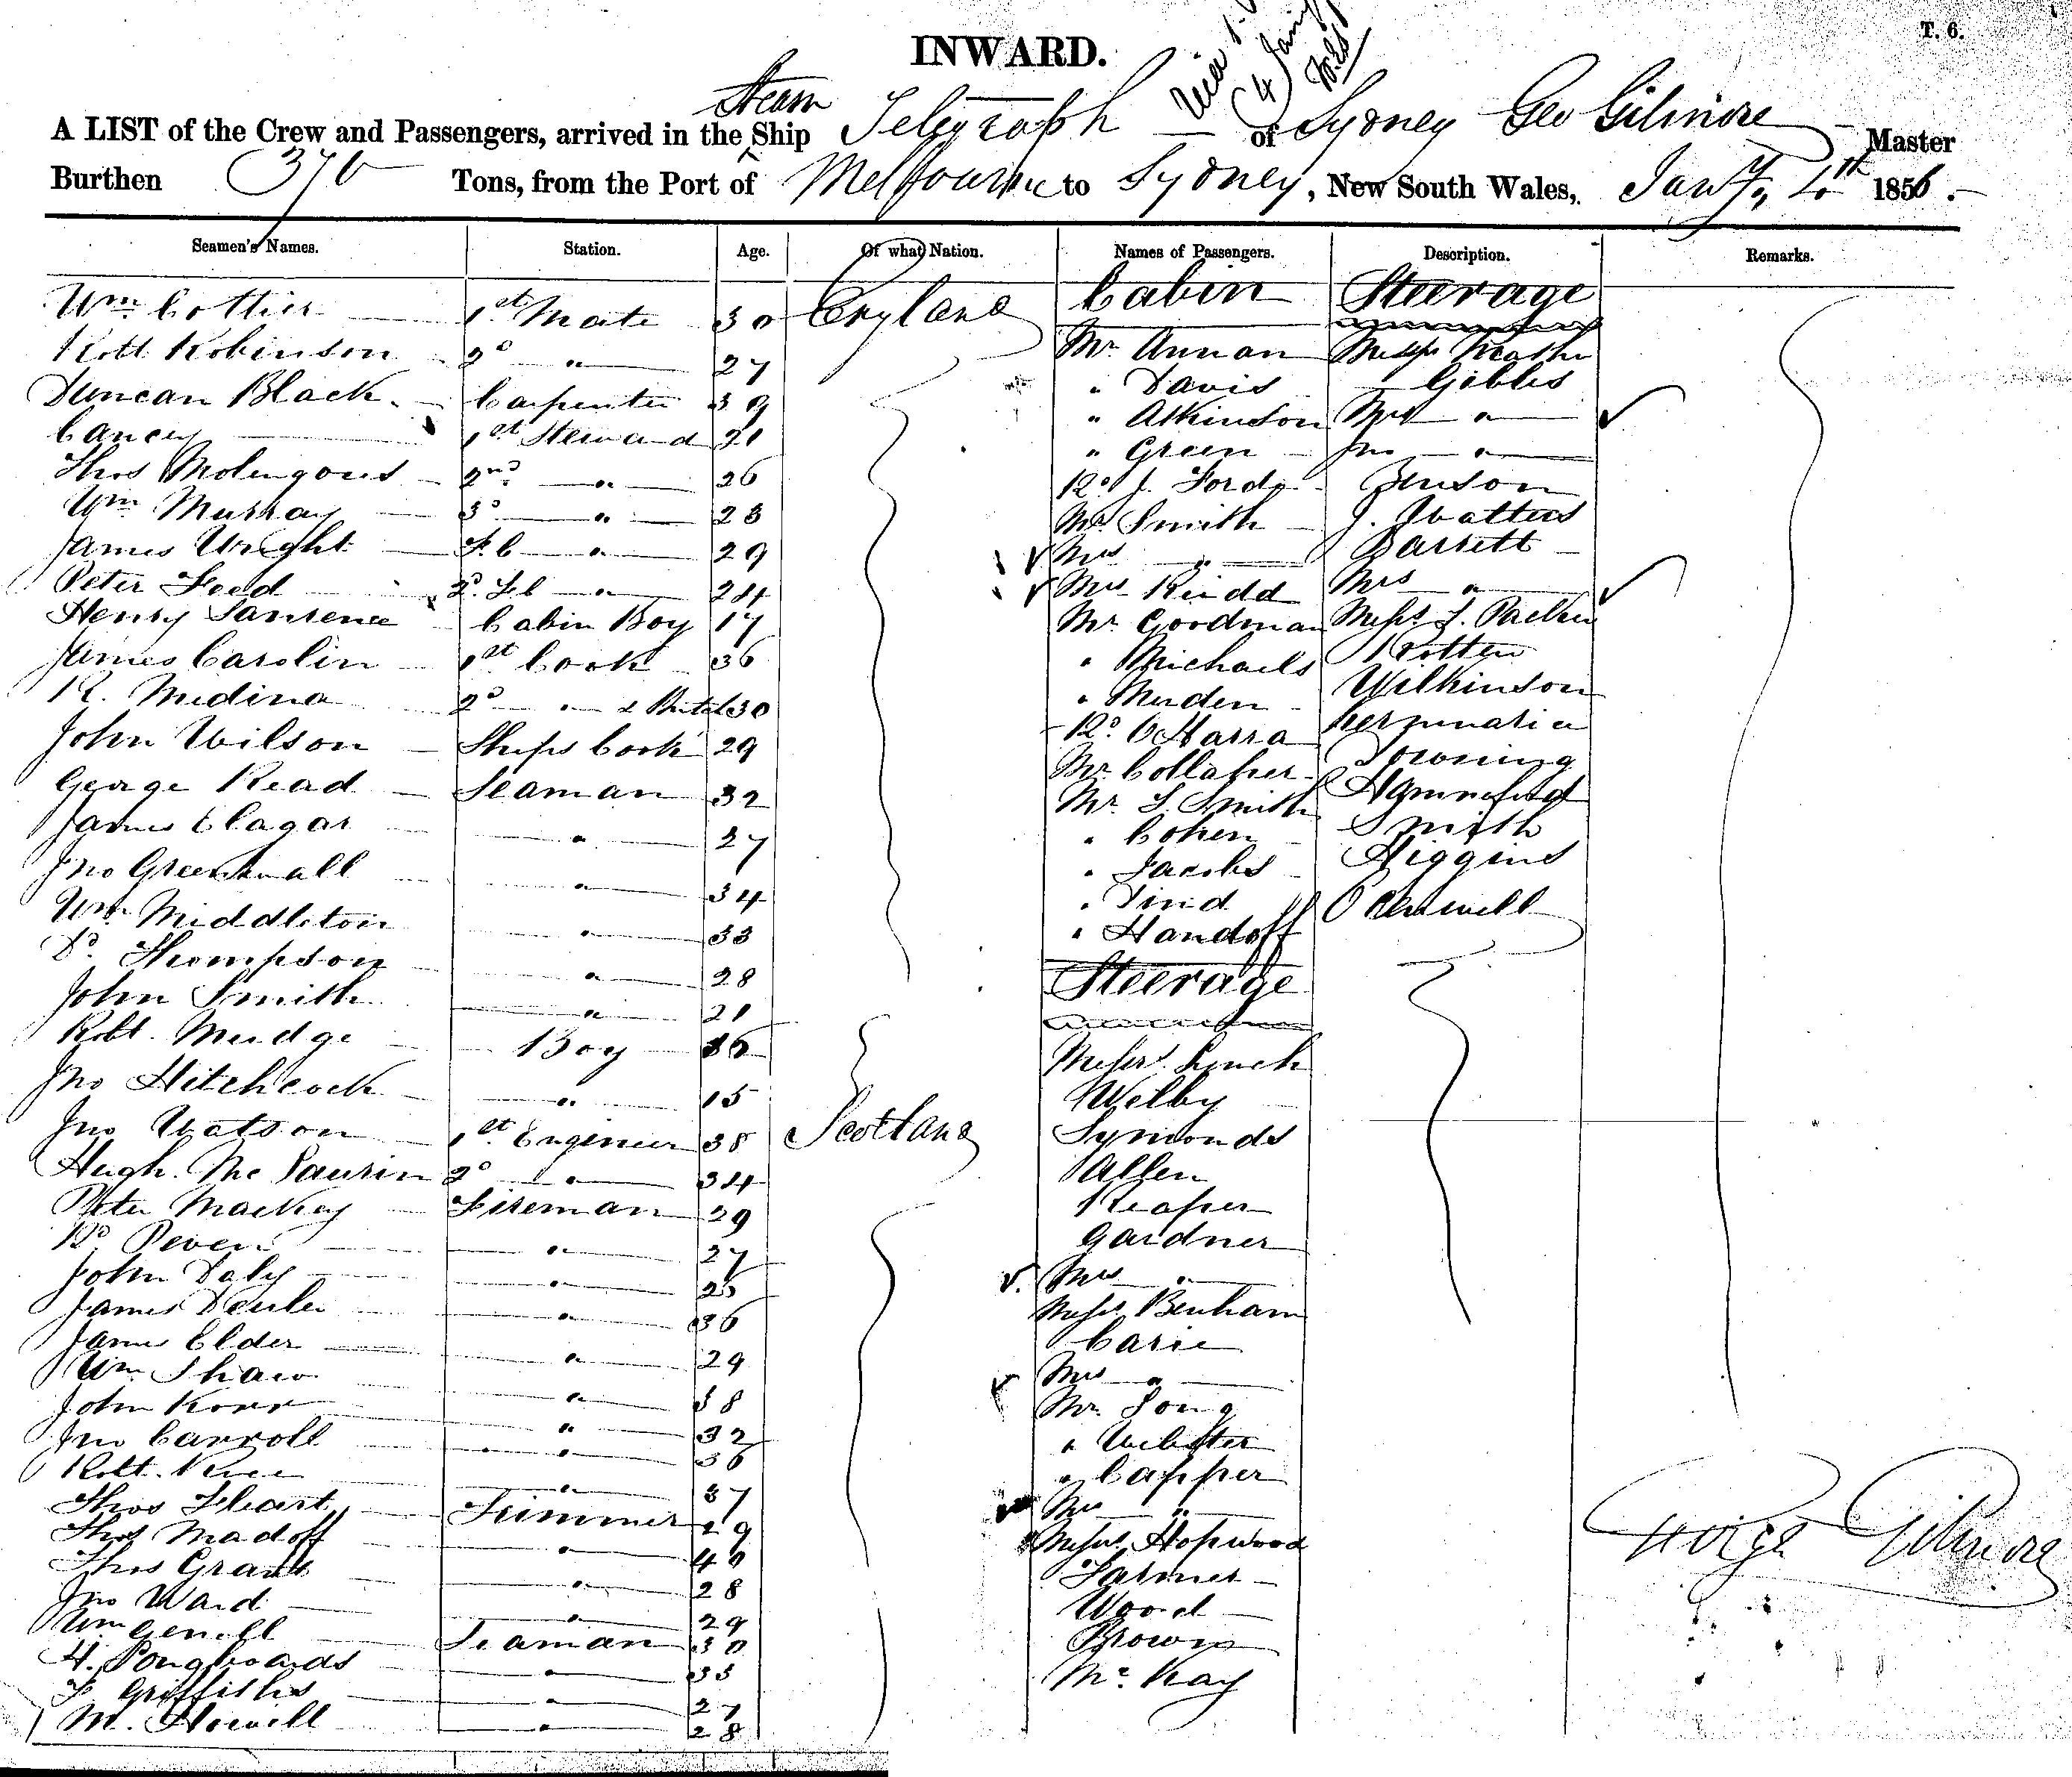 T. 6.
INWARD.
Steam
A LIST of the Crew and Passengers, arrived in the Ship Telegraph of Sydney Geo Gilmore Master
Burthen 370 Tons, from the Port of Melbourne to Sydney, New South Wales, Jany, 4th 1856.
Seamen's Names. Station. Age. Of what Nation. Names of Passengers. Description. Remarks.
Cabin Steerage
Wm Cottier 1st Mate 30 England
Robt Robinson 2d " 27 Mr Annan Messrs
Duncan Black Carpenter 39 " Davis Gibbes
Cancey 1st Steward 21 " Atkinson Mrs "
Thos 2nd " 26 " Green Jno "
Wm Murray 3d " 23 Rd J. Ford Benson
James Wright F.C " 29 Mr Smith J. Watters
Peter Feed 2d F.C " 24 Mrs " Barrett
Henry Laurence Cabin Boy 17 Mrs Kidd Mrs "
James Carolin 1st Cook 36 Mr Goodman Messrs J. Packer
R. Medina 2d " & 30 " Michaels Rotten
John Wilson Ships Cook 29 " Muden Wilkinson
George Read Seaman 32 Rd O'Harra
James Clagar " 27 Mr Collaher Downing
Jno Greenhall " 34 Mr S. Smith
Wm Middleton " 33 " Cohen Smith
D. Thompson " 28 " Jacobs Higgins
John Smith " 21 " Dind
Robt. Mudge Boy 16 " Handoff
Steerage
Jno Hitchcock " 15 Messrs Lynch
Jno Watson 1st Engineer 38 Scotland Welby
Hugh. Mc Laurin 2d " 34 Symonds
Peter Mackey Fireman 29 Allen
Rd " 27 Reaper
John Daly " 25 Gardner
James " 36 Mrs "
James Elder " 29 Messrs Benham
Wm Shaw " 38 Carie
John Korr " 32 Mrs "
Jno Carroll " 36 Mr. Long
Robt. " 37 " Webster
Thos Trimmer 29 " Capper
Thos Madoff " 40 Mrs "
Thos Grant " 28 Messrs Hopwood
Jno Ward " 29 Farmer
Wm Seaman 30 Wood
H. " 33 Brown
F Griffiths " 27 Mc Kay
M. Howell " 28
George Gilmore